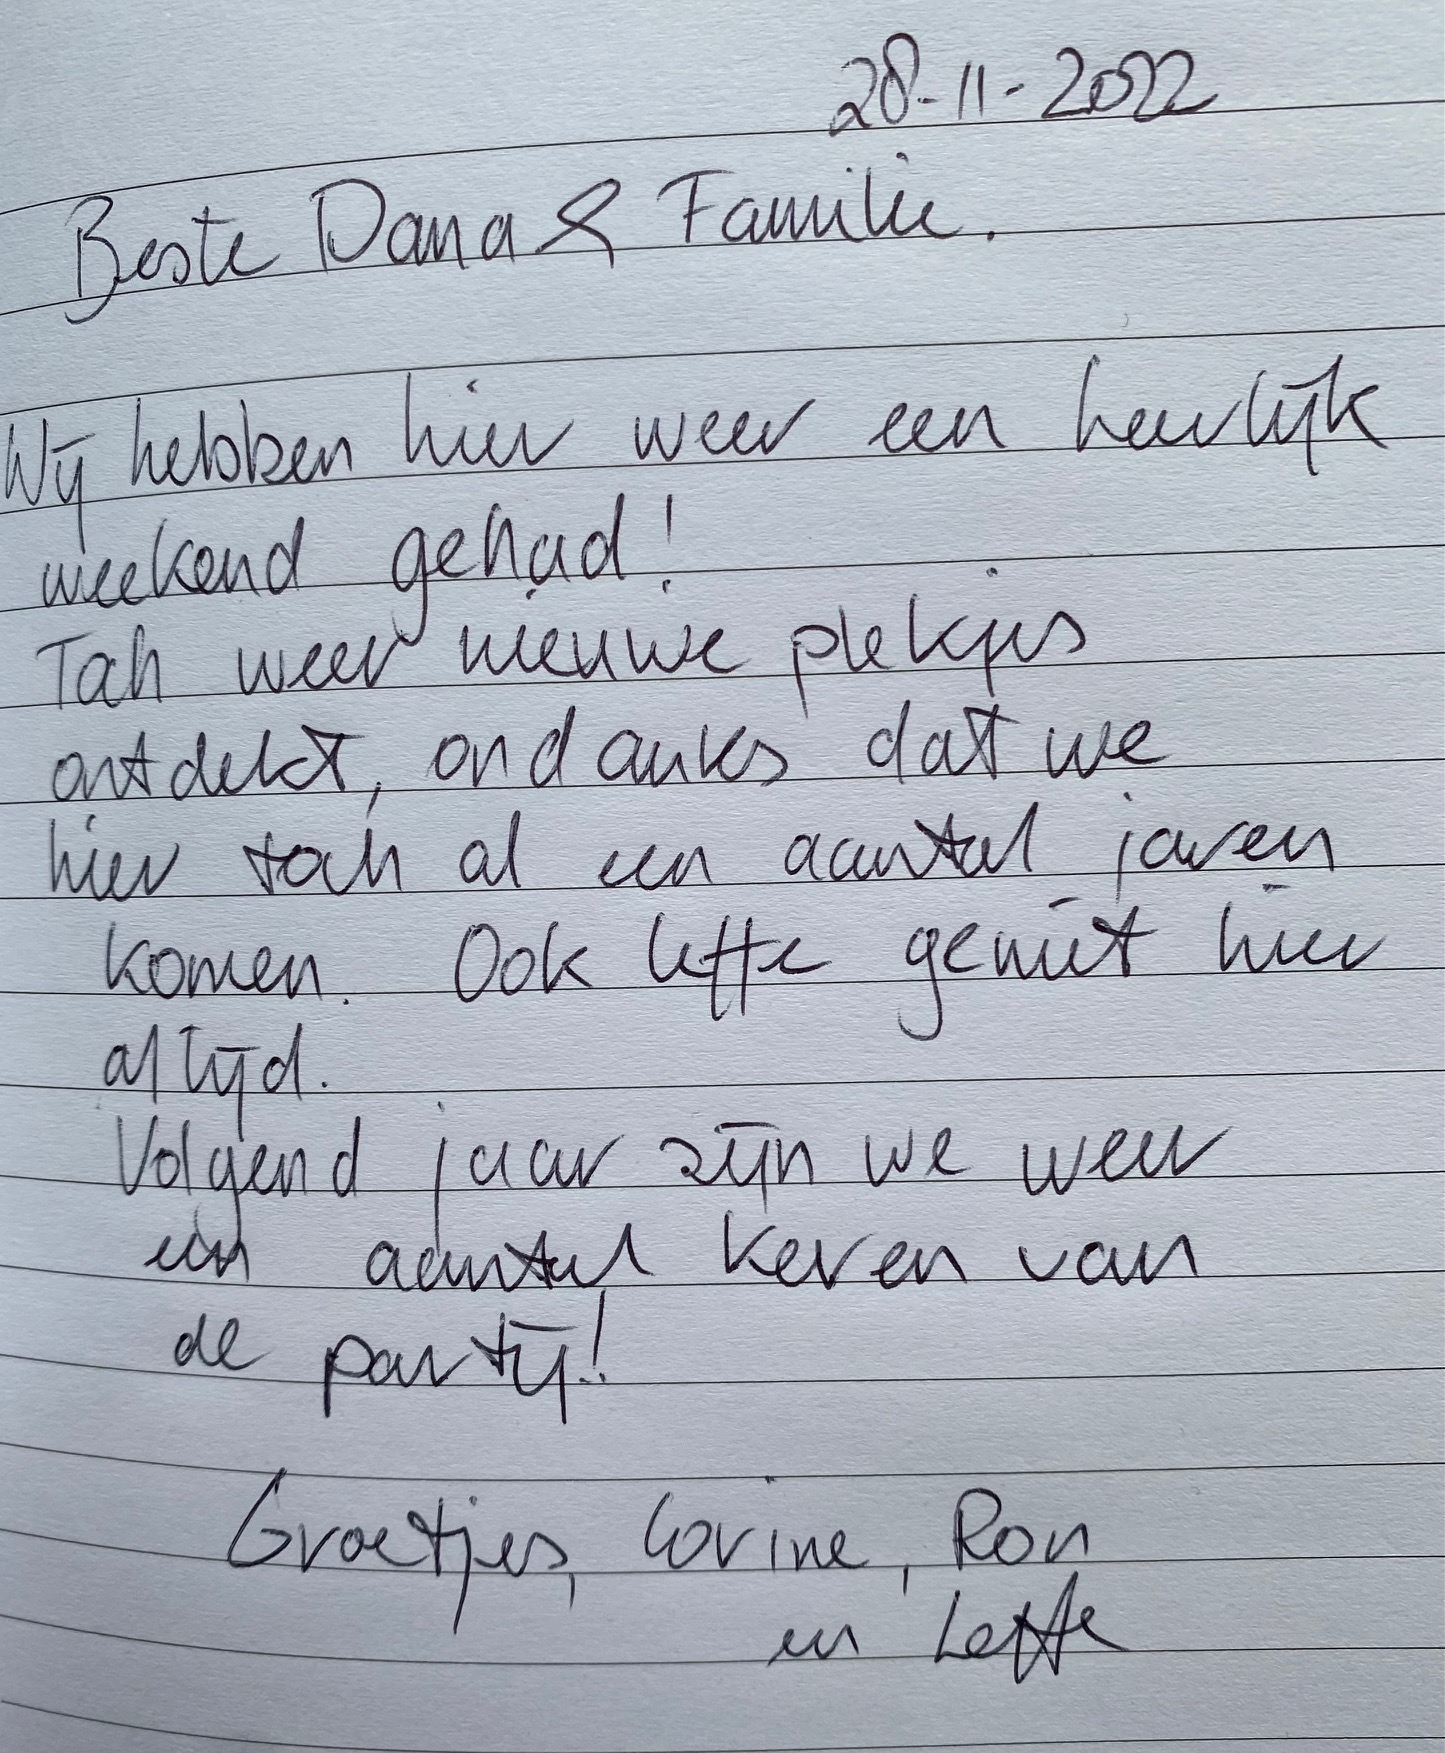 28-11-2022
Beste Dana & Familie.
Wij hebben hier weer een heerlijk
weekend gehad!
Toch weer nieuwe plekjes
ontdekt, ondanks dat we
hier toch al een aantal jaren
komen. Ook Leffe geniet hier
altijd.
Volgend jaar zijn we weer
een aantal keren van
de partij!
Groetjes, Corine, Ron
en Leffe